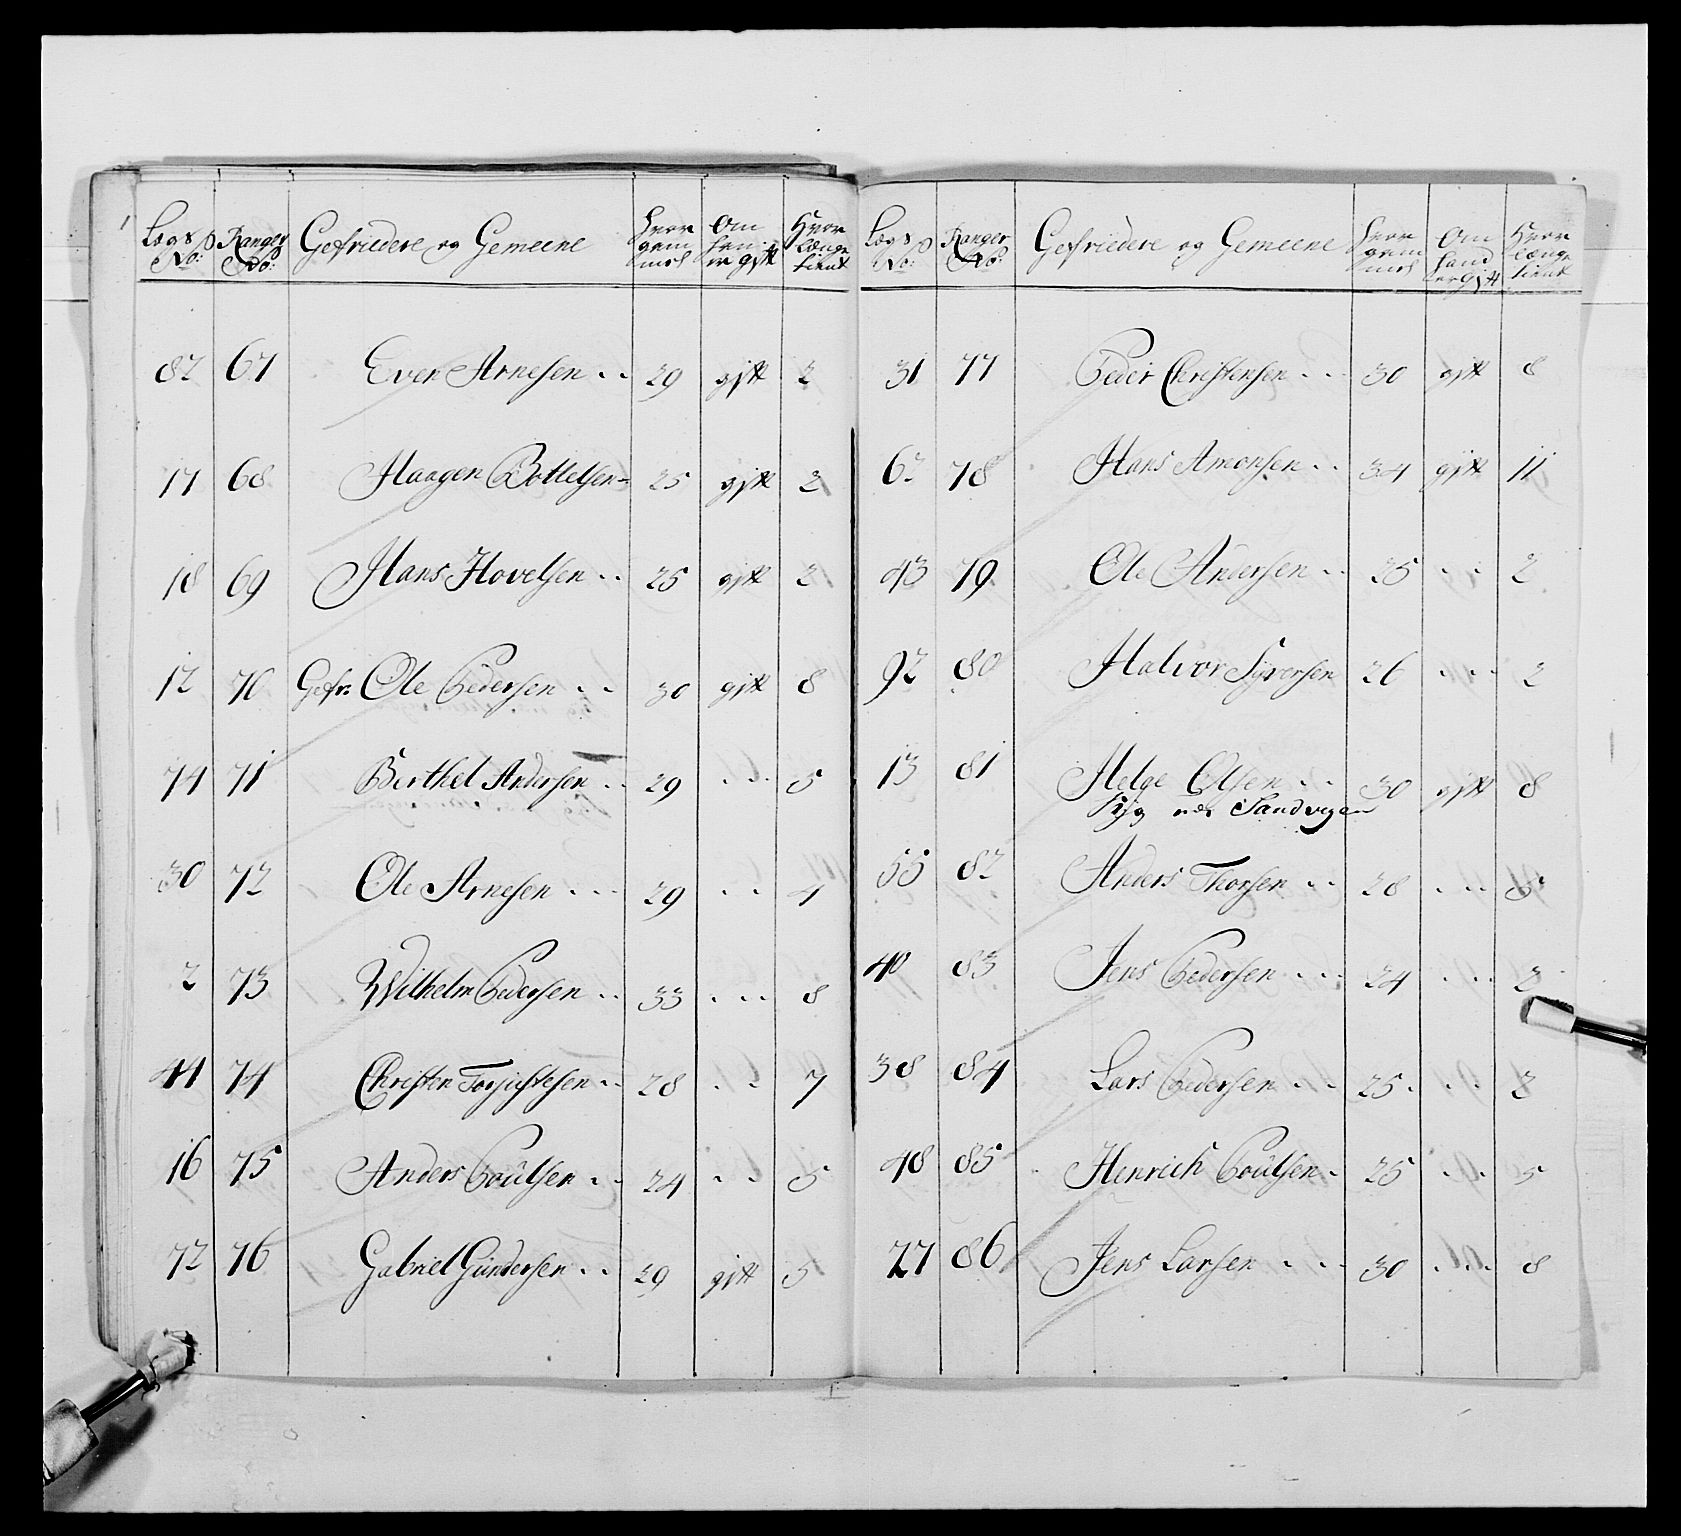 Lægs No: Ranger No: Gefriedere og Gemeene Hvor gam mel Om han er gift Hvor længe tient
82 67 Even Arnesen 29 gift 2
17 68 Haagen Bottelsen 25 gift 2
18 69 Hans Hovelsen 25 gift 2
12 70 Gefr: Ole Pedersen 30 gift 8
74 71 Berthel Andersen 29 5
30 72 Ole Arnesen 29 4
2 73 Wilhelm Pedersen 33 8
41 74 Christen 28 7
16 75 Anders Poulsen 24 5
72 76 Gabriel Gundersen 29 gift 5
Lægs No: Ranger No: Gefriedere og Gemeene Hvor gam mel Om hand er gift Hvor længe tient
31 77 Peder Christensen 30 gift 8
62 78 Hans Amonsen 34 gift 11
43 79 Ole Andersen 25 2
92 80 Halvor Syversen 26 2
13 81 Helge Olsen 30 gift 8
Syg ved Sandvigen
55 82 Anders Thorsen 28 5
40 83 Jens Pedersen 24 2
38 84 Lars Pedersen 25 2
48 85 Henrich Poulsen 25 5
27 86 Jens Larsen 30 8